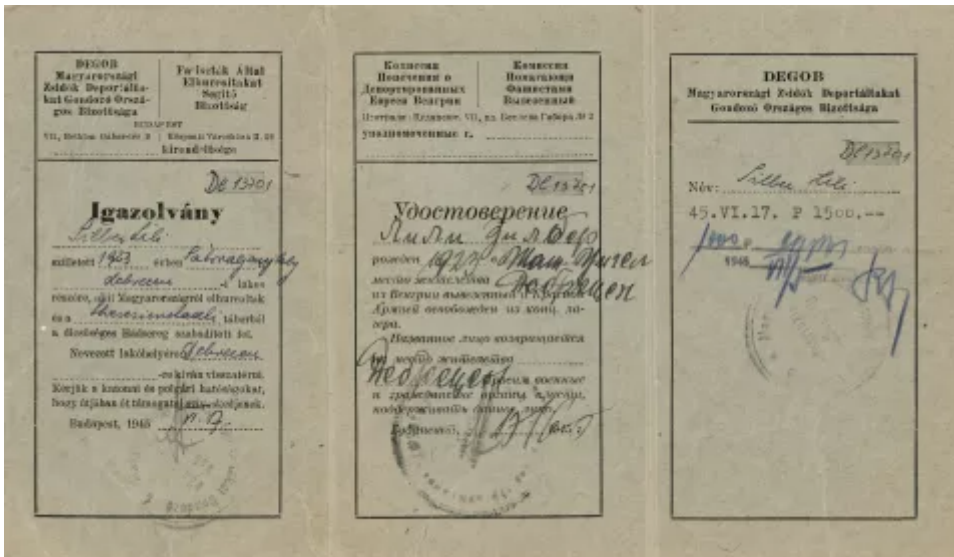 DEGOB
Magyarországi
Zsidók Deportálta-
kat Gondozó Orszá-
gos Bizottsága
Fasiszták Által
Elhurcoltakat
Segítő
Bizottság
BUDAPEST
VII, Bethlen Gábor-tér 2
Központi Városháza II. 28
kirendeltsége
De 13701
Igazolvány
Silber Lili
született 1923 évben Sátoraljaújhely
debreceni -i lakos
részére, akit Magyarországról elhurcoltak
és a theresienstadti táborból
a dicsőséges Hadsereg szabadított fel.
Nevezett lakóhelyére Debrecen
-re kíván visszatérni.
Kérjük a katonai és polgári hatóságokat,
hogy útjában őt támogatni szíveskedjenek.
Budapest, 1945
Комиссия
Попечения о
Депортированных
Евреев Венгрии
Комиссия
Помагающа
Фашистами
Вывезенный
Будапешт, VII, пл. Бетлена Габора № 2
уполномоченные г.
De 13701
Удостоверение
Лили Зилбер
рожден 1923
место жительства Дебрецен
из Венгрии вывезенный и Красной
Армией освобожден из конц. ла-
гера.
Названное лицо возвращается
на место жительства
Дебрецен Просим военные
и гражданские органы власти,
поддерживать данное лицо.
Будапешт,
DEGOB
Magyarországi Zsidók Deportáltakat
Gondozó Országos Bizottsága
De 13701
Név: Silber Lili
45.VI.17. P 1500.--
1000
1945